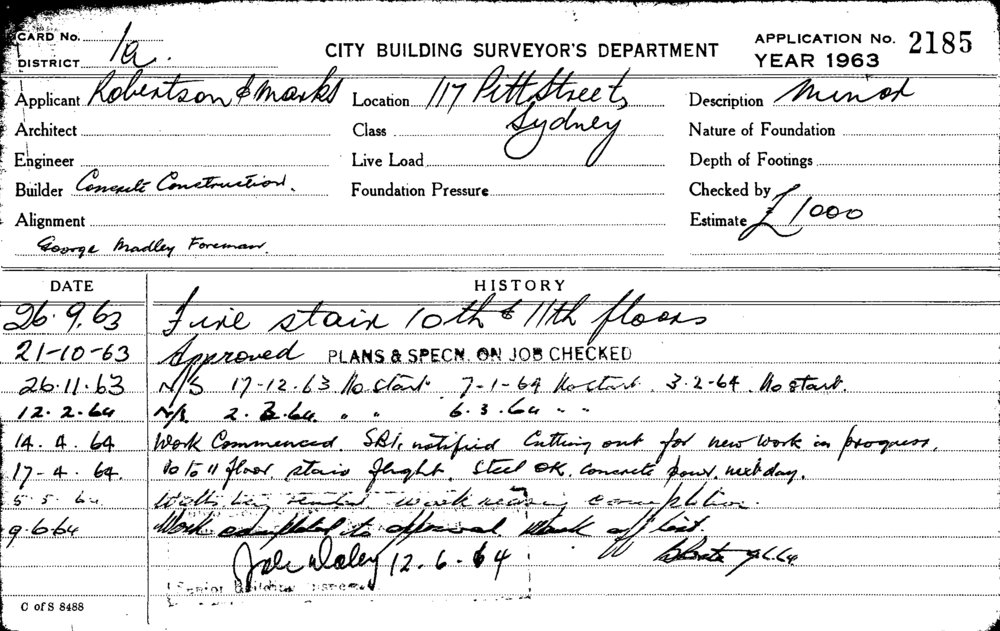 CARD No.
DISTRICT 1a.
CITY BUILDING SURVEYOR'S DEPARTMENT
APPLICATION No. 2185
YEAR 1963
Applicant Robertson & Marks
Location 117 Pitt Street,
Sydney
Description Minor
Architect
Class
Nature of Foundation
Engineer
Live Load
Depth of Footings
Builder Concrete Construction.
Foundation Pressure
Checked by
Alignment
Estimate £1000
George Madley Foreman.
DATE HISTORY
26.9.63 Fire stair 10th & 11th floors
21-10-63 Approved PLANS & SPECN. ON JOB CHECKED
26.11.63 N/S 17-12.63 No start. 7-1-64 No start. 3.2-64. No start.
12.2.64 N/S. 2.3.64. " " 6.3.64 " "
14.4.64 Work Commenced. notified Cutting out for new work in progress.
17-4.64. 10 to 11 floor stairs flight. Steel OK. concrete pour. next day.
5.5.64 Walls being work nearing completion.
9.6.64 Work completed to approval
12.6.64 9.6.64
Senior Building Inspector
C of S 8488